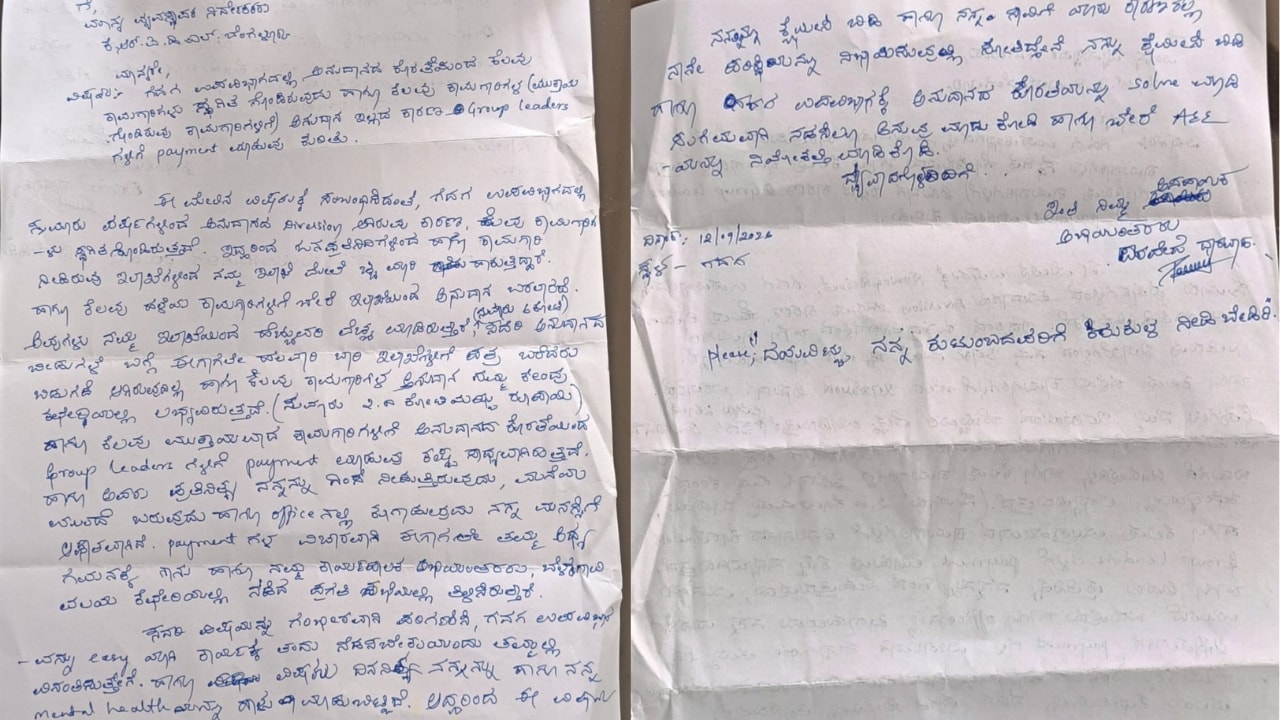 ಗೆ,
ಮಾನ್ಯ ವ್ಯವಸ್ಥಾಪಕ ನಿರ್ದೇಶಕರು
ಕೆ.ಆರ್.ಐ.ಡಿ.ಎಲ್. ಬೆಂಗಳೂರು
ಮಾನ್ಯರೇ,
ವಿಷಯ:- ಗದಗ ಉಪವಿಭಾಗದಲ್ಲಿ ಅನುದಾನದ ಕೊರತೆಯಿಂದ ಕೆಲವು
ಕಾಮಗಾರಿಗಳು ಸ್ಥಗಿತ ಗೊಂಡಿರುವುದು ಹಾಗೂ ಕೆಲವು ಕಾಮಗಾರಿಗಳ (ಮುಕ್ತಾಯ
ಗೊಂಡಿರುವ ಕಾಮಗಾರಿಗಳಿಗೆ) ಅನುದಾನ ಇಲ್ಲದ ಕಾರಣ Group Leaders
ಗಳಿಗೆ payment ಮಾಡುವ ಕುರಿತು.
ಈ ಮೇಲಿನ ವಿಷಯಕ್ಕೆ ಸಂಬಂಧಿಸಿದಂತೆ, ಗದಗ ಉಪವಿಭಾಗದಲ್ಲಿ
ವರ್ಷಗಳಿಂದ ಅನುದಾನದ Diversion ಆಗಿರುವ ಕಾರಣ, ಕೆಲವು ಕಾಮಗಾರಿಗ
-ಳು ಸ್ಥಗಿತಗೊಂಡಿರುತ್ತವೆ. ಇದ್ದರಿಂದ ಜನಪ್ರತಿನಿಧಿಗಳಿಂದ ಹಾಗೂ ಕಾಮಗಾರಿ
ನೀಡಿರುವ ಇಲಾಖೆಗಳಿಂದ ನಮ್ಮ ಇಲಾಖೆ ಮೇಲೆ ಹಾಕುತ್ತಿದ್ದಾರೆ.
ಹಾಗೂ ಕೆಲವು ಹಳೆಯ ಕಾಮಗಾರಿಗಳಿಗೆ ಬೇರೆ ಇಲಾಖೆಯಿಂದ ಅನುದಾನ ಬರಬೇಕಿದೆ.
ಅವುಗಳು ನಮ್ಮ ಇಲಾಖೆಯಿಂದ ಹೆಚ್ಚುವರಿ ವೆಚ್ಚ ಮಾಡಿರುತ್ತಾರೆ, (ಸುಮಾರು 6 ಕೋಟಿ) ಸದರಿ ಅನುದಾನದ
ಬಿಡುಗಡೆ ಬಗ್ಗೆ ಈಗಾಗಲೇ ಹಲವಾರು ಬಾರಿ ಇಲಾಖೆಗಳಿಗೆ ಪತ್ರ ಬರೆದರು
ಬಿಡುಗಡೆ ಆಗಿರುವುದಿಲ್ಲ ಹಾಗೂ ಕೆಲವು ಕಾಮಗಾರಿಗಳ ಅನುದಾನ ನಮ್ಮ ಕೇಂದ್ರ
ಕಚೇರಿಯಲ್ಲಿ ಲಭ್ಯವಿರುತ್ತದೆ. (ಸುಮಾರು ಕೋಟಿಯಷ್ಟು ರೂಪಾಯಿ)
ಹಾಗೂ ಕೆಲವು ಮುಕ್ತಾಯವಾದ ಕಾಮಗಾರಿಗಳಿಗೆ ಅನುದಾನದ ಕೊರತೆಯಿಂದ
Group Leaders ಗಳಿಗೆ payment ಮಾಡುವ ಕಷ್ಟ ಸಾಧ್ಯವಾಗಿರುತ್ತದೆ.
ಹಾಗೂ ಅವರು ಪ್ರತಿನಿತ್ಯ ನನ್ನನ್ನು ಹಿಂಸೆ ನೀಡುತ್ತಿರುವುದು, ಮನೆಯ
ಮುಂದೆ ಬರುವುದು ಹಾಗೂ office ನಲ್ಲಿ ನನ್ನ ಮನಸ್ಸಿಗೆ
ಆಘಾತವಾಗಿದೆ. payment ಗಳ ವಿಚಾರವಾಗಿ ಈಗಾಗಲೇ ತಮ್ಮ
ಗಮನಕ್ಕೆ ನಾನು ಹಾಗೂ ನಮ್ಮ ಕಾರ್ಯಪಾಲಕ ಅಭಿಯಂತರರು, ಬೆಳಗಾವಿ
ವಲಯ ಕಛೇರಿಯಲ್ಲಿ ನಡೆದ ಪ್ರಗತಿ ಸಭೆಯಲ್ಲಿ ತಿಳಿಸಿರುತ್ತಾರೆ.
ಸದರಿ ವಿಷಯವನ್ನು ಗಂಭೀರವಾಗಿ ಪರಿಗಣಿಸಿ, ಗದಗ ಉಪವಿಭಾಗ
-ವನ್ನು easy ಯಾಗಿ ತಮ್ಮಲ್ಲಿ
ವಿನಂತಿಸುತ್ತೇನೆ. ಹಾಗೂ ವಿಷಯ ದಿನನಿತ್ಯ ನನ್ನನ್ನು ಹಾಗೂ ನನ್ನ
mental health ಯನ್ನು ಹಾಳು ಮಾಡುಬಿಟ್ಟಿದೆ. ಆದ್ದರಿಂದ ಈ ವಿಷಯ
ನನ್ನನ್ನು ಕ್ಷಮಿಸಿ ಬಿಡಿ ಹಾಗೂ ನನ್ನ ಸಾವಿಗೆ ಯಾರು ಕಾರಣರಲ್ಲ
ನಾನೇ ಪರಿಸ್ಥಿತಿಯನ್ನು ನಿಭಾಯಿಸುವುದರಲ್ಲಿ ಸೋತಿದ್ದೇನೆ ನನ್ನು ಕ್ಷಮಿಸಿ ಬಿಡಿ
ಹಾಗೂ ಉಪವಿಭಾಗಕ್ಕೆ ಅನುದಾನದ ಕೊರತೆಯನ್ನು solve ಮಾಡಿ
ಸುಗಮವಾಗಿ ನಡೆಸಲು ಅನುವು ಮಾಡಿ ಕೊಡಿ ಹಾಗೂ ಬೇರೆ AEE
-ಯನ್ನು ನಿಯೋಜನೆ ಮಾಡಿ ಕೊಡಿ.
ಧನ್ಯವಾದಗಳೊಂದಿಗೆ..
ಇಂತಿ ನಿಮ್ಮ
ದಿನಾಂಕ: 12/01/2026
ಅಭಿಯಂತರರು
ಸ್ಥಳ - ಗದಗ
please! ದಯವಿಟ್ಟು ನನ್ನ ಕುಟುಂಬದವರಿಗೆ ಕಿರುಕುಳ ನೀಡಬೇಡಿರಿ.